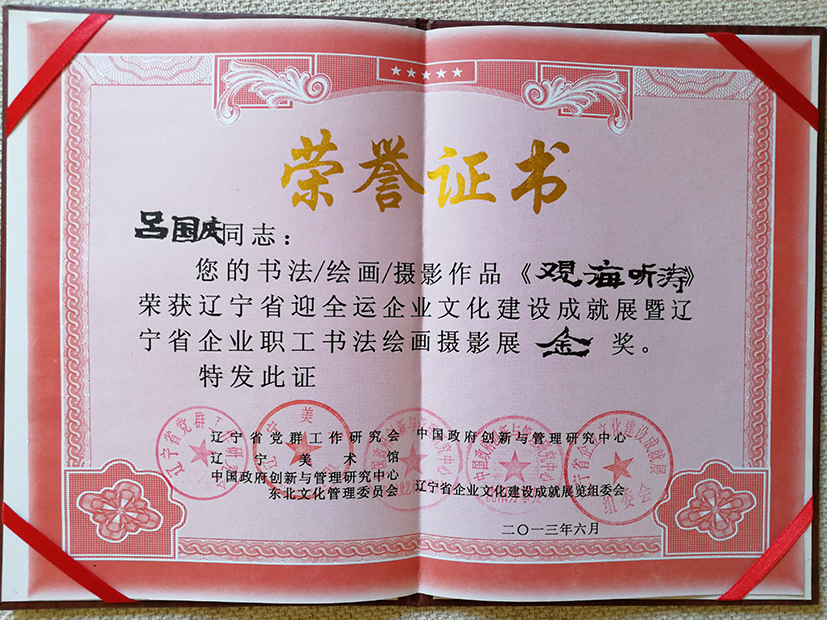 荣誉证书
吕国庆同志：
您的书法/绘画/摄影作品《观海听涛》
荣获辽宁省迎全运企业文化建设成就展暨辽
宁省企业职工书法绘画摄影展 金 奖。
特发此证
辽宁省党群工作研究会 中国政府创新与管理研究中心
辽宁美术馆
中国政府创新与管理研究中心
东北文化管理委员会 辽宁省企业文化建设成就展览组委会
二〇一三年六月